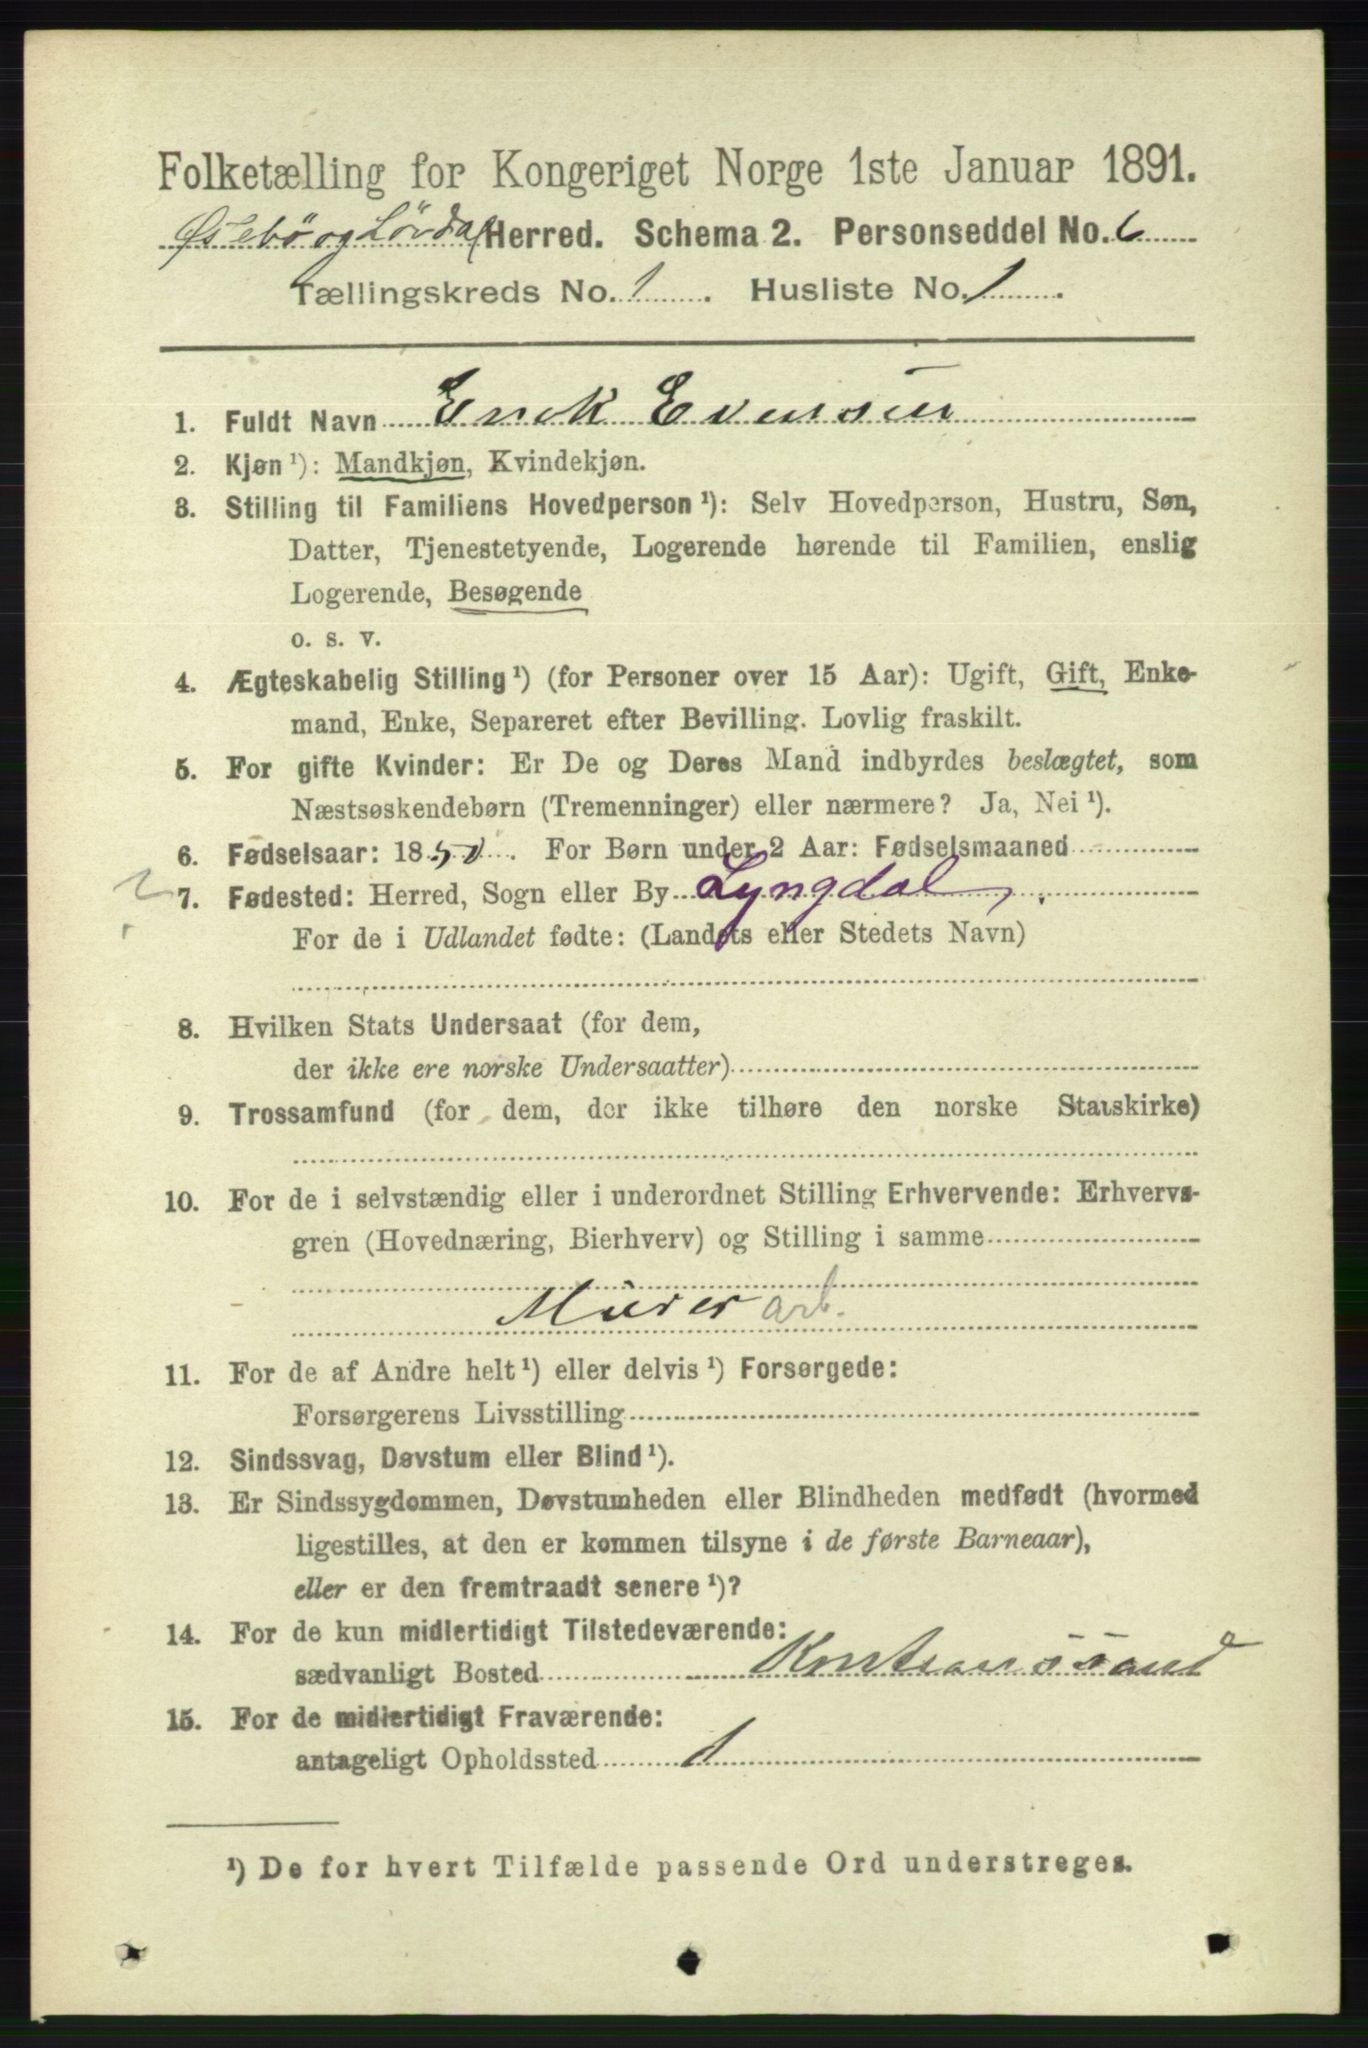 Folketælling for Kongeriget Norge 1ste Januar 1891.
Øslebö og Lövdal Herred. Schema 2. Personseddel No. 6
Tællingskreds No. 1. Husliste No. 1.
1. Fuldt Navn Erik Evensen
2. Kjøn ¹): Mandkjøn, Kvindekjøn.
3. Stilling til Familiens Hovedperson ¹): Selv Hovedperson, Hustru, Søn,
Datter, Tjenestetyende, Logerende hørende til Familien, enslig
Logerende, Besøgende
o. s. v.
4. Ægteskabelig Stilling ¹) (for Personer over 15 Aar): Ugift, Gift, Enke-
mand, Enke, Separeret efter Bevilling. Lovlig fraskilt.
5. For gifte Kvinder: Er De og Deres Mand indbyrdes beslægtet, som
Næstsøskendebørn (Tremenninger) eller nærmere? Ja, Nei ¹).
6. Fødselsaar: 1850. For Børn under 2 Aar: Fødselsmaaned
? 7. Fødested: Herred, Sogn eller By Lyngdal,
For de i Udlandet fødte: (Landets eller Stedets Navn)
8. Hvilken Stats Undersaat (for dem,
der ikke ere norske Undersaatter)
9. Trossamfund (for dem, der ikke tilhøre den norske Statskirke)
10. For de i selvstændig eller i underordnet Stilling Erhvervende: Erhvervs-
gren (Hovednæring, Bierhverv) og Stilling i samme
Murer arb.
11. For de af Andre helt ¹) eller delvis ¹) Forsørgede:
Forsørgerens Livsstilling
12. Sindssvag, Døvstum eller Blind ¹).
13. Er Sindssygdommen, Døvstumheden eller Blindheden medfødt (hvormed
ligestilles, at den er kommen tilsyne i de første Barneaar),
eller er den fremtraadt senere ¹)?
14. For de kun midlertidigt Tilstedeværende:
sædvanligt Bosted Kristianssand
15. For de midlertidigt Fraværende:
antageligt Opholdssted
¹) De for hvert Tilfælde passende Ord understreges.